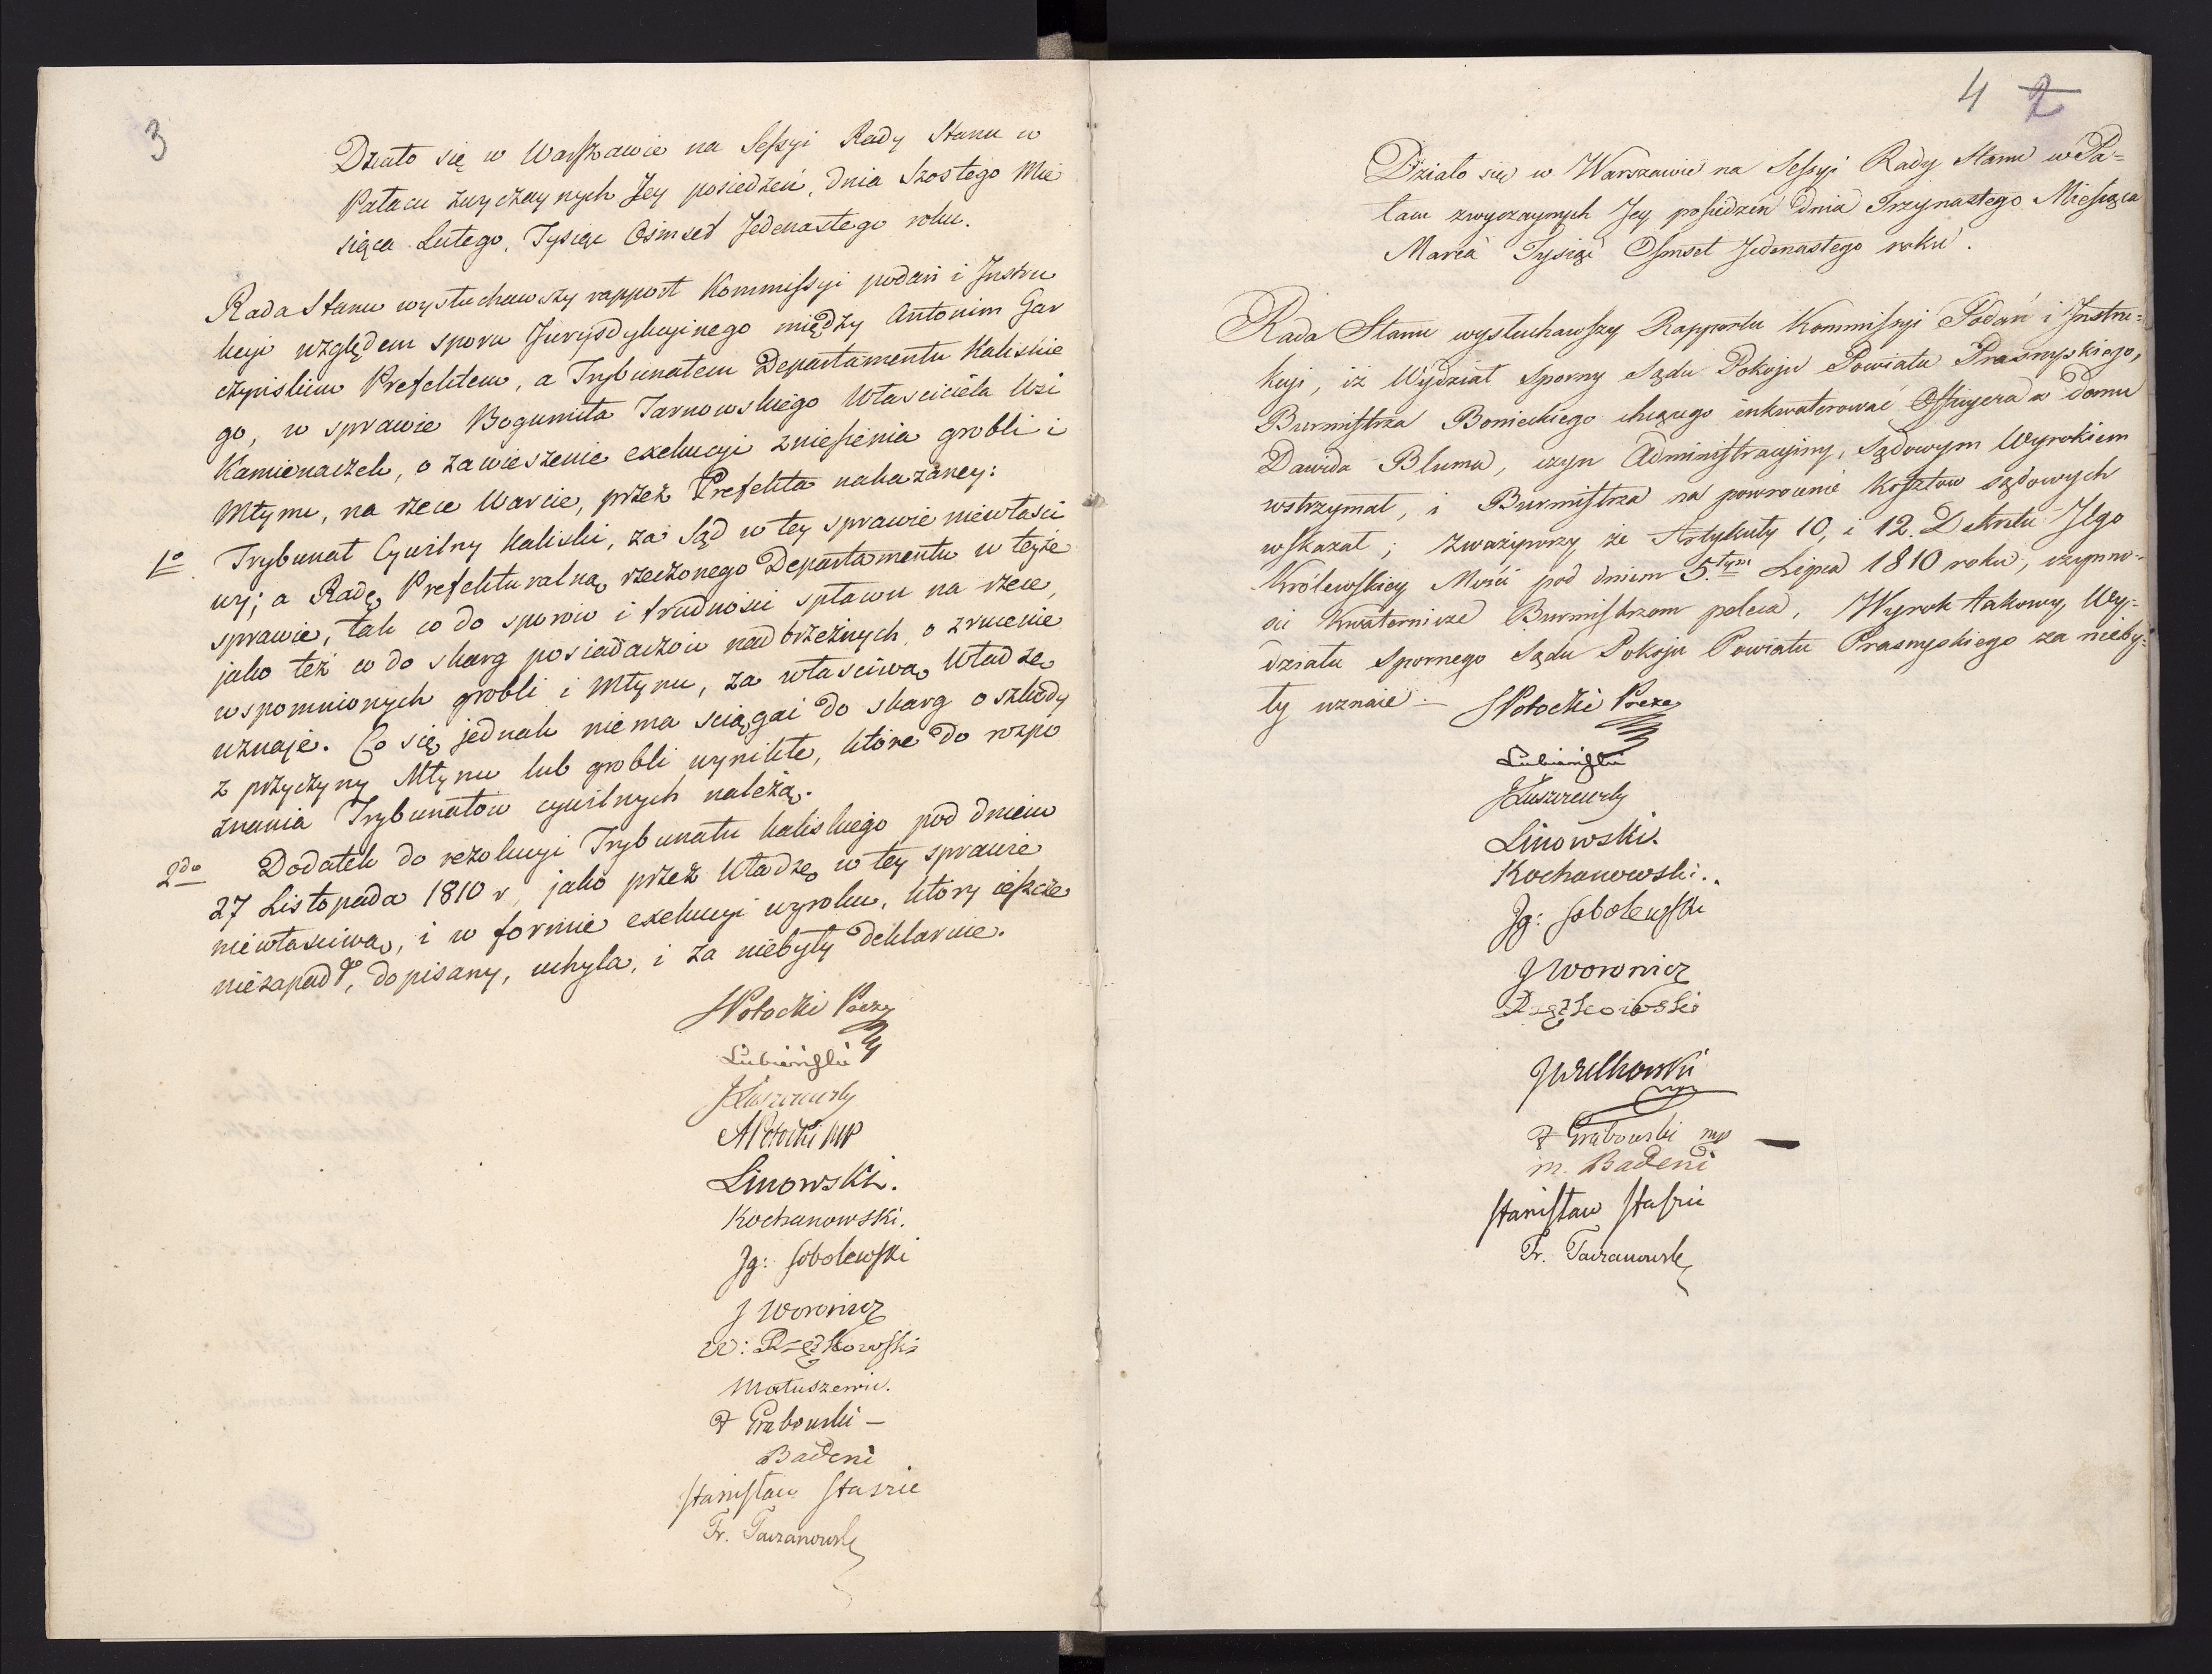 3
Działo się w Warszawie na Sessyi Rady Stanu w
Pałacu zwyczaynych Jey posiedzeń, dnia Szostego Mie
siąca Lutego, Tysiąc Osmset Jedenastego roku.
Rada Stanu wysłuchawszy rapport Kommissyi podań i Instru
kcyi względem sporu Jurysdykcyinego między Antonim Gar
czyńskim Prefektem, a Trybunałem Departamentu Kaliskie
go, w sprawie Bogumiła Tarnowskiego Własciciela Wsi
Kamionaczek, o zawieszenie exekucyi zniesienia grobli i
Młynu, na rzece Warcie, przez Prefekta nakazaney:
1o Trybunał Cywilny Kaliski, za Sąd w tey sprawie niewłasci
wy; a Radę Prefekturalną rzeczonego Departamentu w teyże
sprawie, tak co do sporów i trudności spławu na rzece,
jako też co do skarg posiadaczów nadbrzeżnych o zrucenie
wspomnionych grobli i Młynu, za własciwą Władzę
uznaje. Co się jednak niema sciągać do skarg o szkody
z przyczyny Młynu lub grobli wynikłe, które do rozpo
znania Trybunałów cywilnych należą.
2do Dodatek do rezolucyi Trybunału kaliskiego pod dniem
27 Listopada 1810 r. jako przez Władzę w tey sprawie
niewłasciwą, i w formie exekucyi wyroku, który ieszcze
niezapadł, dopisany, uchyla, i za niebyły deklaruie.
SPotocki Prezy
Lubieński
JŁuszczewsky
APotocki MP
Linowski.
Kochanowski.
Jg: Sobolewski
J Woronicz
Matuszewic.
F Grabowski –
Badeni
Stanisław Staszic
4 2
Działo się w Warszawie na Sessyi Rady Stanu w Pa=
łacu zwyczaynych Jey posiedzeń dnia Trzynastego Miesiąca
Marca Tysiąc Osmset Jedenastego roku.
Rada Stanu wysłuchawszy Rapportu Kommissyi Podań i Instru=
kcyi, iż Wydział Sporny Sądu Pokoju Powiatu Prasnyskiego,
Burmistrza Bonieckiego chcącego inkwaterować Officyera w domu
Dawida Bluma, czyn Administracyiny, Sądowym Wyrokiem
wstrzymał, i Burmistrza na powrocenie kosztów sądowych
wskazał; Zważywszy, że Artykuły 10, i 12. Dekretu Jego
Królewskiey Mości pod dniem 5.tym Lipca 1810 roku, czynno=
ści kwaternicze Burmistrzom poleca, Wyrok takowy Wy=
działu Spornego Sądu Pokoju Powiatu Prasnyskiego za nieby=
ły uznaie –
SPotocki Preze
Lubieński
JŁuszczewsky
Linowski.
Kochanowski.
Jg: Sobolewski
J Woronicz
F Grabowski mp
m. Badeni
Stanisław Staszic